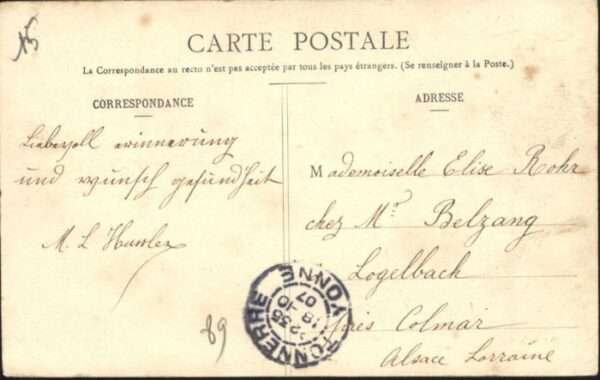 CARTE POSTALE
La Correspondance au recto n'est pas acceptée par tous les pays étrangers. (Se renseigner à la Poste.)
CORRESPONDANCE
Liebevoll erinnerung
und wunsch gesundheit
M. L
89
ADRESSE
Mademoiselle Elise Rohr
chez Mr. Belzang
Logelbach
près Colmar
Alsace Lorraine
TONNERRE
YONNE
07